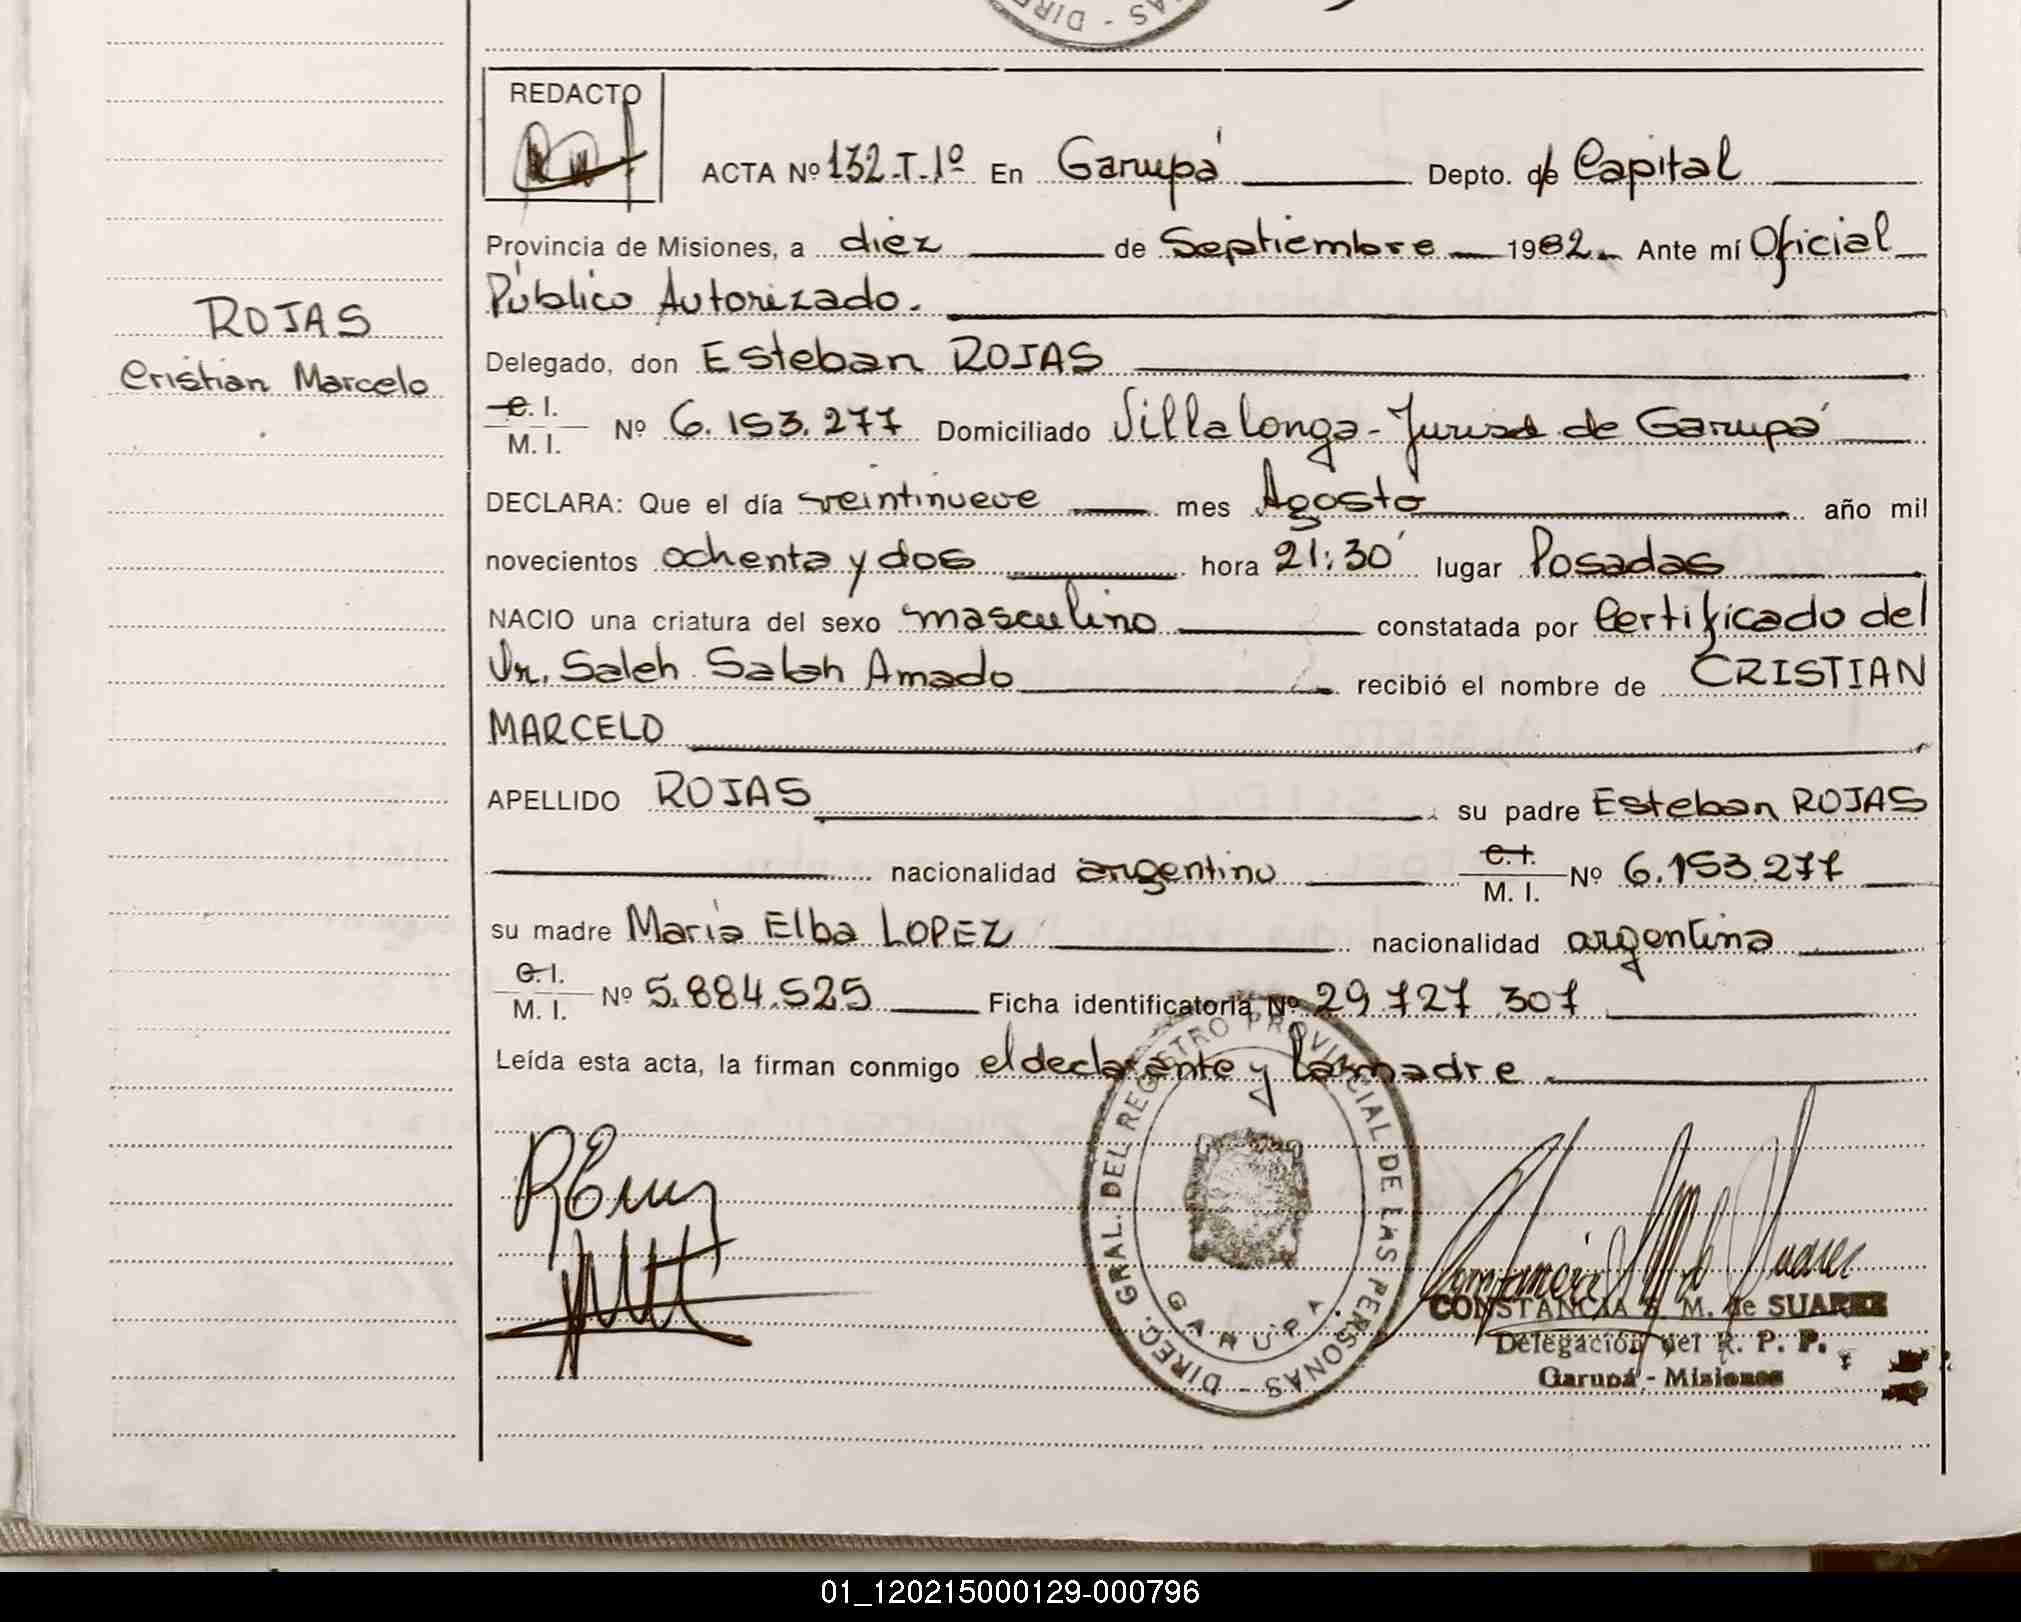 DIREC - AS
REDACTO
ACTA Nº 132-T-1º En Garupá Depto. de Capital
Provincia de Misiones, a diez de Septiembre 1982 Ante mí Oficial
Público Autorizado.
Delegado, don Esteban ROJAS
ROJAS
Cristian Marcelo
C. I.
M. I. Nº 6.153.277 Domiciliado Villalonga - Jurisd de Garupá
DECLARA: Que el día veintinueve mes Agosto año mil
novecientos ochenta y dos hora 21:30' lugar Posadas
NACIO una criatura del sexo masculino constatada por Certificado del
Dr. Saleh Salah Amado recibió el nombre de CRISTIAN
MARCELO
APELLIDO ROJAS su padre Esteban ROJAS
nacionalidad argentino C. I. M. I. Nº 6.153.277
su madre María Elba LOPEZ nacionalidad argentina
C. I.
M. I. Nº 5.884.525 Ficha identificatoria Nº 29.727.307
Leída esta acta, la firman conmigo el declarante y la madre
DIREC. GRAL. DEL REGISTRO PROVINCIAL DE LAS PERSONAS -
GARUPA
CONSTANCIA S. M. de SUAREZ
Delegación del R. P. P.
Garupá - Misiones
01_120215000129-000796